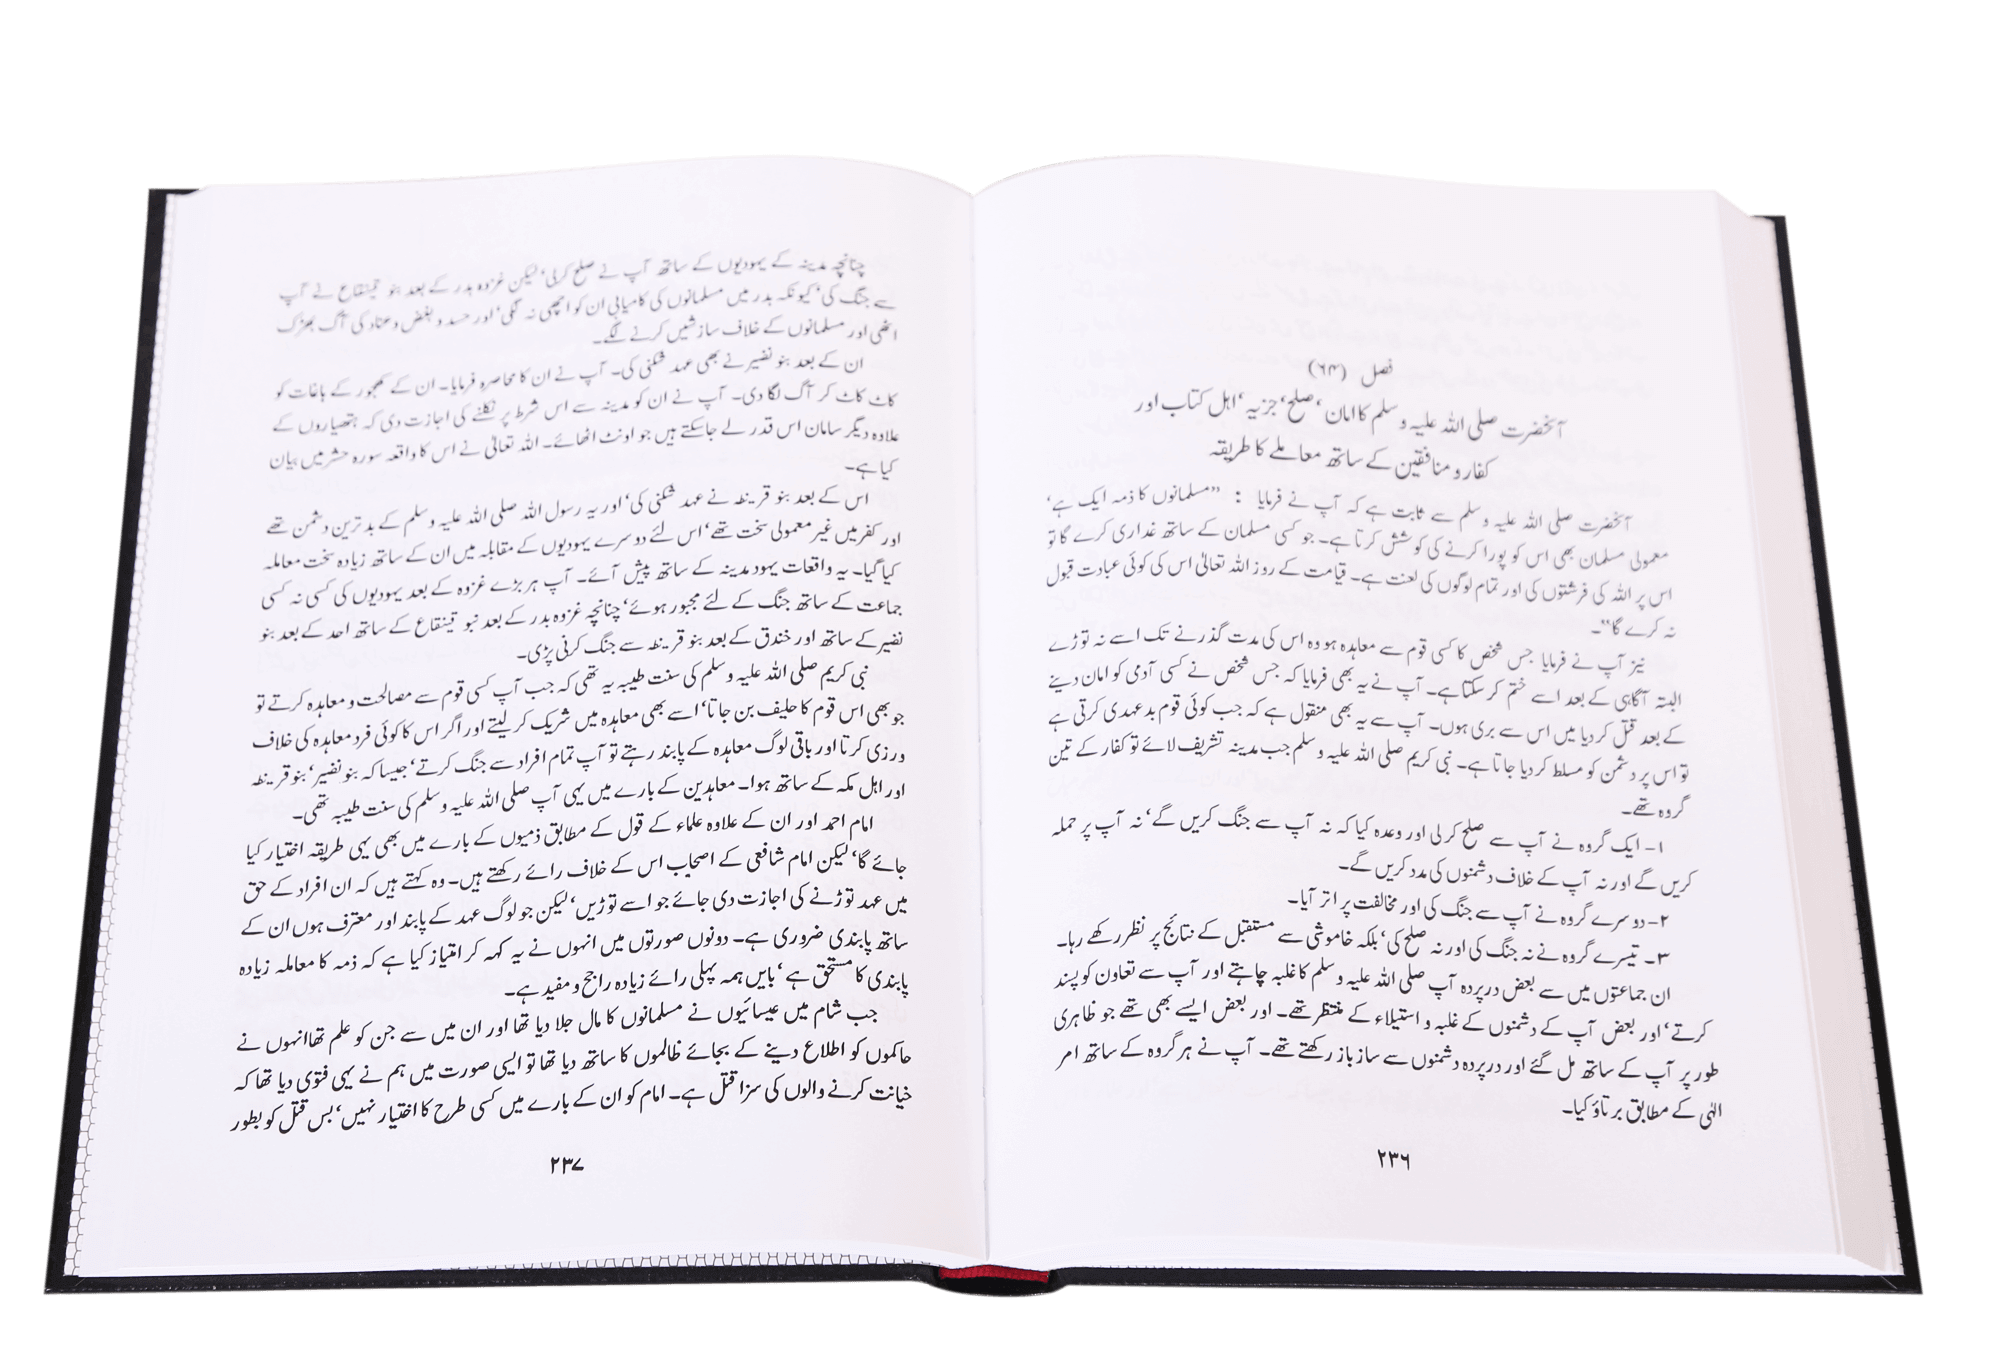 فصل (۶۴)
آنحضرت صلی اللہ علیہ و سلم کا امان‘ صلح‘ جزیہ‘ اہل کتاب اور
کفار و منافقین کے ساتھ معاملے کا طریقہ
آنحضرت صلی اللہ علیہ و سلم سے ثابت ہے کہ آپ نے فرمایا : ”مسلمانوں کا ذمہ ایک ہے‘
معمولی مسلمان بھی اس کو پورا کرنے کی کوشش کرتا ہے۔ جو کسی مسلمان کے ساتھ غداری کرے گا تو
اس پر اللہ کی فرشتوں کی اور تمام لوگوں کی لعنت ہے۔ قیامت کے روز اللہ تعالیٰ اس کی کوئی عبادت قبول
نہ کرے گا“۔
نیز آپ نے فرمایا جس شخص کا کسی قوم سے معاہدہ ہو وہ اس کی مدت گذرنے تک اسے نہ توڑے
البتہ آگاہی کے بعد اسے ختم کر سکتا ہے۔ آپ نے یہ بھی فرمایا کہ جس شخص نے کسی آدمی کو امان دینے
کے بعد قتل کر دیا میں اس سے بری ہوں۔ آپ سے یہ بھی منقول ہے کہ جب کوئی قوم بدعہدی کرتی ہے
تو اس پر دشمن کو مسلط کر دیا جاتا ہے۔ نبی کریم صلی اللہ علیہ و سلم جب مدینہ تشریف لائے تو کفار کے تین
گروہ تھے۔
۱- ایک گروہ نے آپ سے صلح کرلی اور وعدہ کیا کہ نہ آپ سے جنگ کریں گے‘ نہ آپ پر حملہ
کریں گے اور نہ آپ کے خلاف دشمنوں کی مدد کریں گے۔
۲- دوسرے گروہ نے آپ سے جنگ کی اور مخالفت پر اتر آیا۔
۳- تیسرے گروہ نے نہ جنگ کی اور نہ صلح کی‘ بلکہ خاموشی سے مستقبل کے نتائج پر نظر رکھے رہا۔
ان جماعتوں میں سے بعض درپردہ آپ صلی اللہ علیہ و سلم کا غلبہ چاہتے اور آپ سے تعاون کو پسند
کرتے‘ اور بعض آپ کے دشمنوں کے غلبہ و استیلاء کے منتظر تھے۔ اور بعض ایسے بھی تھے جو ظاہری
طور پر آپ کے ساتھ مل گئے اور درپردہ دشمنوں سے ساز باز رکھتے تھے۔ آپ نے ہر گروہ کے ساتھ امر
الٰہی کے مطابق برتاؤ کیا۔
۲۳۶
چنانچہ مدینہ کے یہودیوں کے ساتھ آپ نے صلح کرلی‘ لیکن غزوہ بدر کے بعد بنو قینقاع نے آپ
سے جنگ کی‘ کیونکہ بدر میں مسلمانوں کی کامیابی ان کو اچھی نہ لگی‘ اور حسد و بغض و عناد کی آگ بھڑک
اٹھی اور مسلمانوں کے خلاف سازشیں کرنے لگے۔
ان کے بعد بنو نضیر نے بھی عہد شکنی کی۔ آپ نے ان کا محاصرہ فرمایا۔ ان کے کھجور کے باغات کو
کاٹ کاٹ کر آگ لگا دی۔ آپ نے ان کو مدینہ سے اس شرط پر نکلنے کی اجازت دی کہ ہتھیاروں کے
علاوہ دیگر سامان اس قدر لے جاسکتے ہیں جو اونٹ اٹھائے۔ اللہ تعالیٰ نے اس کا واقعہ سورہ حشر میں بیان
کیا ہے۔
اس کے بعد بنو قریظہ نے عہد شکنی کی‘ اور یہ رسول اللہ صلی اللہ علیہ و سلم کے بدترین دشمن تھے
اور کفر میں غیر معمولی سخت تھے‘ اس لئے دوسرے یہودیوں کے مقابلہ میں ان کے ساتھ زیادہ سخت معاملہ
کیا گیا۔ یہ واقعات یہود مدینہ کے ساتھ پیش آئے۔ آپ ہر بڑے غزوہ کے بعد یہودیوں کی کسی نہ کسی
جماعت کے ساتھ جنگ کے لئے مجبور ہوئے‘ چنانچہ غزوہ بدر کے بعد نبو قینقاع کے ساتھ احد کے بعد بنو
نضیر کے ساتھ اور خندق کے بعد بنو قریظہ سے جنگ کرنی پڑی۔
نبی کریم صلی اللہ علیہ و سلم کی سنت طیبہ یہ تھی کہ جب آپ کسی قوم سے مصالحت و معاہدہ کرتے تو
جو بھی اس قوم کا حلیف بن جاتا‘ اسے بھی معاہدہ میں شریک کر لیتے اور اگر اس کا کوئی فرد معاہدہ کی خلاف
ورزی کرتا اور باقی لوگ معاہدہ کے پابند رہتے تو آپ تمام افراد سے جنگ کرتے‘ جیسا کہ بنو نضیر‘ بنو قریظہ
اور اہل مکہ کے ساتھ ہوا۔ معاہدین کے بارے میں یہی آپ صلی اللہ علیہ و سلم کی سنت طیبہ تھی۔
امام احمد اور ان کے علاوہ علماء کے قول کے مطابق ذمیوں کے بارے میں بھی یہی طریقہ اختیار کیا
جائے گا‘ لیکن امام شافعی کے اصحاب اس کے خلاف رائے رکھتے ہیں۔ وہ کہتے ہیں کہ ان افراد کے حق
میں عہد توڑنے کی اجازت دی جائے جو اسے توڑیں‘ لیکن جو لوگ عہد کے پابند اور معترف ہوں ان کے
ساتھ پابندی ضروری ہے۔ دونوں صورتوں میں انہوں نے یہ کہہ کر امتیاز کیا ہے کہ ذمہ کا معاملہ زیادہ
پابندی کا مستحق ہے‘ بایں ہمہ پہلی رائے زیادہ راجح و مفید ہے۔
جب شام میں عیسائیوں نے مسلمانوں کا مال جلا دیا تھا اور ان میں سے جن کو علم تھا انہوں نے
حاکموں کو اطلاع دینے کے بجائے ظالموں کا ساتھ دیا تھا تو ایسی صورت میں ہم نے یہی فتویٰ دیا تھا کہ
خیانت کرنے والوں کی سزا قتل ہے۔ امام کو ان کے بارے میں کسی طرح کا اختیار نہیں‘ بس قتل کو بطور
۲۳۷